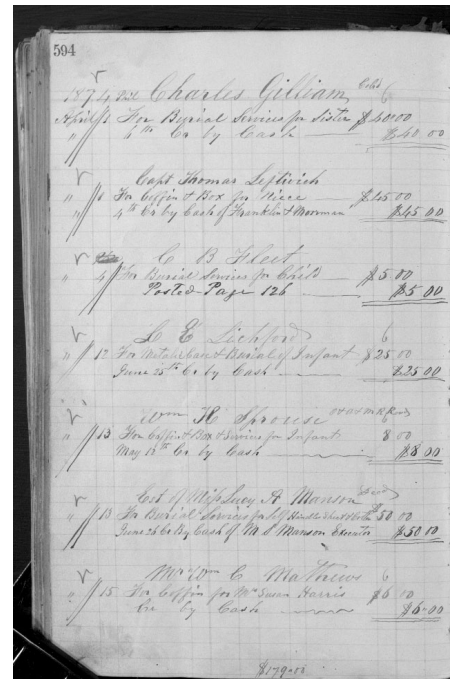 594
1874 Charles Gilliam Cold
April 1 For Burial Services for Sister $40.00
" 4th Cr by Cash $40 00
Capt Thomas Leftwich
" 1 For Coffin & Box for Niece $45.00
" 4th Cr by Cash of Franklin & Moorman $45.00
C B Fleet
" 4 For Burial Services for Child $5 00
Posted Page 126 $5 00
C E Lichford
" 12 For Burial of Infant $25 00
June 25th Cr by Cash $25 00
Wm H Sprouse
" 13 For Coffin & Box & Services for Infant 8 00
May 12th Cr by Cash $8 00
Est of Miss Lucy A. Manson
" 13 For Burial Services for Self $50 00
June 26 Cr By Cash of M S Manson Executor $50 00
Mr Wm C Mathews 6
" 15 For Coffin for Mrs Susan Harris $6 00
Cr by Cash $6.00
$179.00